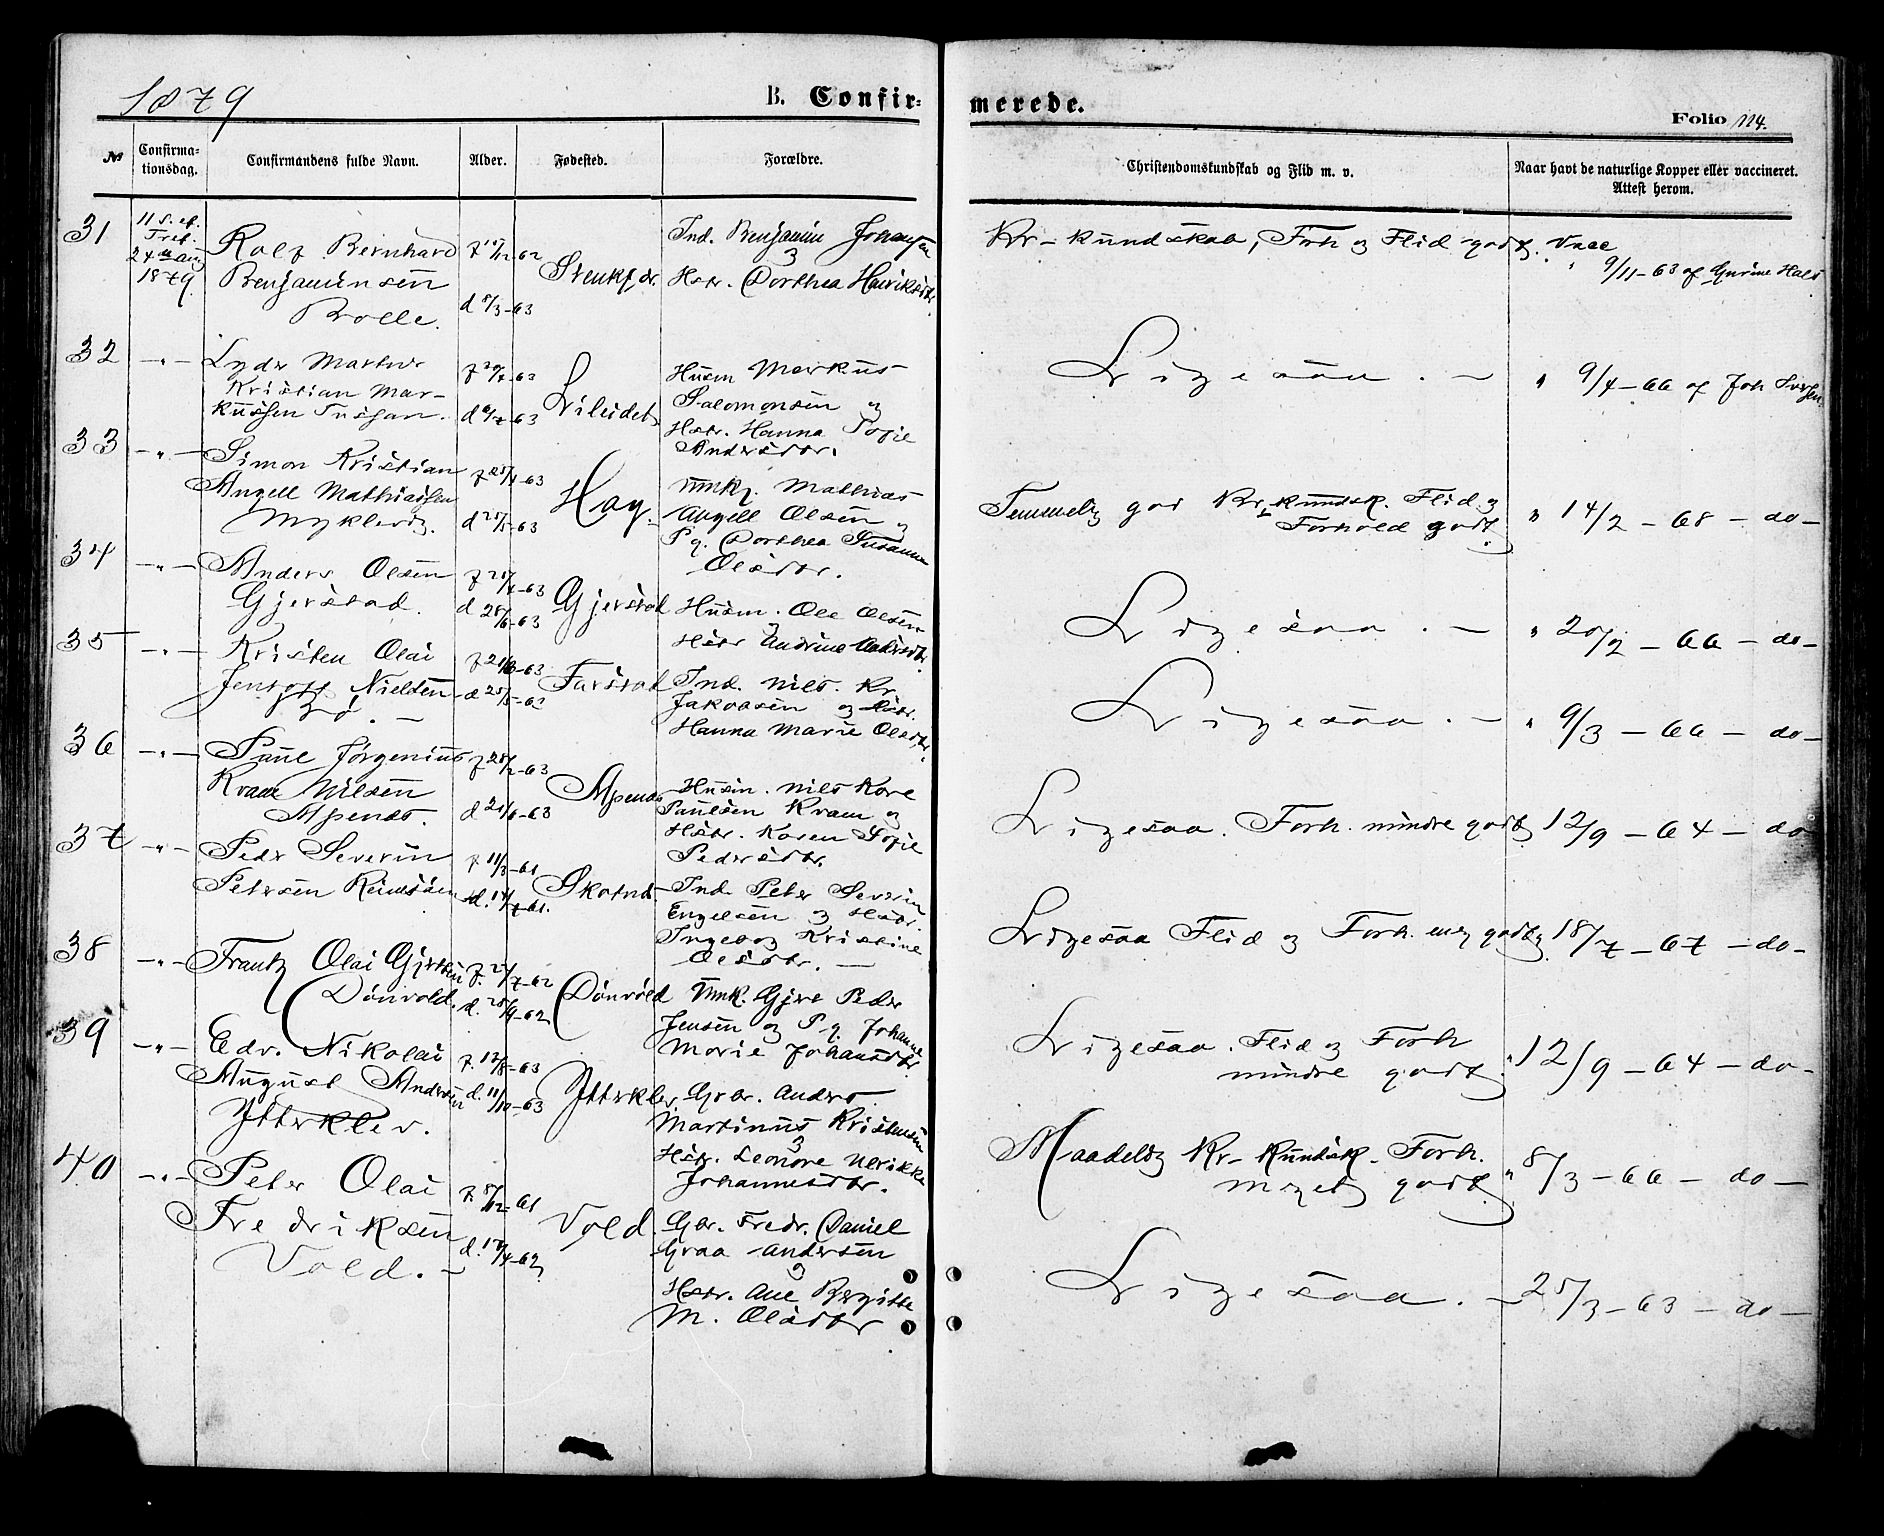 1879
B. Confir-
merede.
Folio 114.
№
Confirma-
tionsdag.
Confirmandens fulde Navn.
Alder.
Fødested.
Forældre.
Christendomskundskab og Flid m. v.
Naar havt de naturlige Kopper eller vaccineret.
Attest herom.
31
11 S. ef.
Tref.
24de Aug
1879.
Rolf Bernhard
Benjaminsen
Bolle.
d 8/3-63
Ind. Benjamin Johansen
og
Hstr. Dorthea Henriksdtr.
Kr- kundskab, Forh og Flid godt.
Vacc
9/11-63 af
32
-"-
Lyder
Kristian Mar-
kussen
d 6/7-63
Husm Markus
Salomonsen og
Hstr. Hanna Sofie
Andersdtr.
Ligesaa. -
" 9/4-66 af Joh
33
-"-
Simon Kristian
Angell Mathiassen
Hag.
Umkf. Mathias
Angell Olsen og
Pg. Dorthea Susanna
Olsdtr.
Temmelig god Kr-kundsk. Flid og
Forhold godt.
" 14/2-68-do-
34
-"-
Anders Olsen
Gjerstad.
Gjerstad
Husm. Ole Olsen
og
Hstr Andrine
Ligesaa. -
" 20/2-66-do-
35
-"-
Kristen Olai
Jentoft Nielsen
Bø. -
d 25/5-63
Farstad
Ind. Nils. Kr
Jakobsen og Hstr.
Hanna Marie Olsdtr.
Ligesaa. -
" 9/3-66-do-
36
-"-
Paul Jørgenius
Kvam Nilsen
Alpenes.
Alpenes
Husm. Nils Kore
Paulsen Kvam og
Hstr. Karen Sofie
Pedersdtr.
Ligesaa. Forh. mindre godt
12/9-64-do
37
-"-
Peder Severin
Petersen Reinsaen
f 11/3-61
Skotnes
Ind. Peter Severin
Engelsen og Hstr.
Ingebog Kristine
Olsdtr. -
Ligesaa Flid og Forh. meg godt
18/7-67-do-
38
-"-
Frantz Olai Gjertsen
Dønvold.
Dønvold
Umk. Gjert Peder
Jensen og Pg. Johanne
Marie Johansdtr.
Ligesaa. Flid og Forh
mindre godt
" 12/9-64-do-
39
-"-
Edv. Nikolai
August Andersen
Ytterklev.
d. 11/10-63
Ytterklev
Gbr. Anders
Martinus Kristensen
og
Hstr. Leonore Ulrikke
Johannesdtr.
Maadelig Kr-Kundsk. Forh.
meget godt
" 8/3-66-do-
40
-"-
Peter Olai
Fredriksen
Vold. -
f. 8/12-61
Vold.
Gbr. Fredr. Daniel
Graa Andersen
og
Hstr. Ane Bergitte
M. Olsdtr
Ligesaa. -
25/3-63-do-